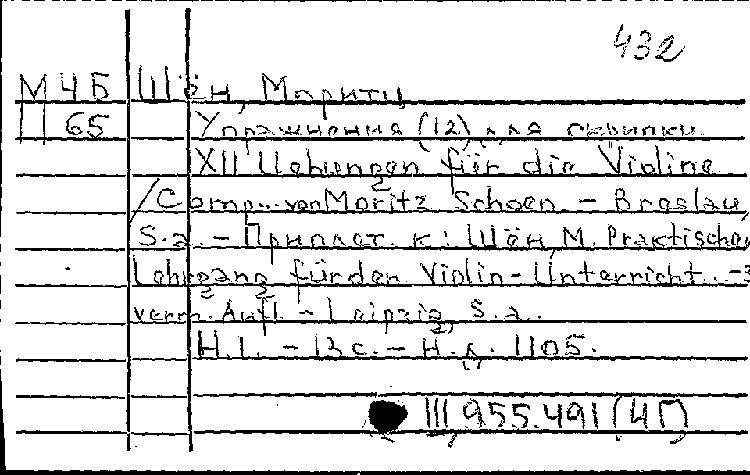 432
М4Б Шён, Мориц
П 65 Упражнения (12) для скрипки.
XII Uebungen für die Violine
/Comp... von Moritz Schoen. – Breslau,
S.a. – Приплет. к: Шён, М. Praktischer
Lehrgang für den Violin-Unterricht... – 3
verm. Aufl. – Leipzig, S.a.
Н.1. – 13 с. – Н.д. 1105.
III 955.491 (4Г)